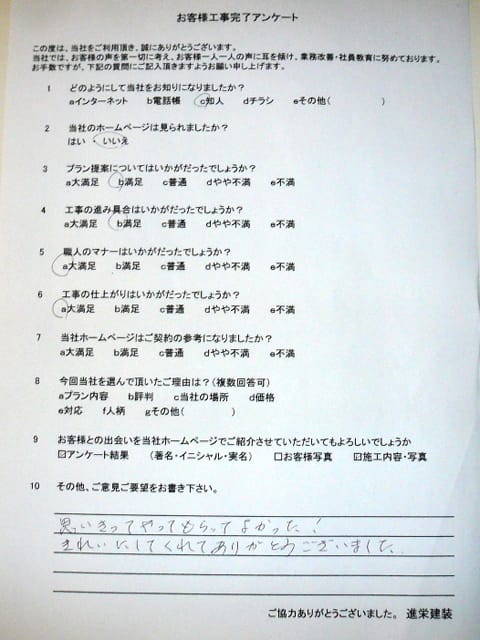 お客様工事完了アンケート
この度は、当社をご利用頂き、誠にありがとうございます。
当社では、お客様の声を第一切に考え、お客様一人一人の声に耳を傾け、業務改善・社員教育に努めております。
お手数ですが、下記の質問にご記入頂きますようお願い申し上げます。
1 どのようにして当社をお知りになりましたか?
aインターネット b電話帳 c知人 dチラシ eその他( )
2 当社のホームページは見られましたか?
はい ・ いいえ
3 プラン提案についてはいかがだったでしょうか?
a大満足 b満足 c普通 dやや不満 e不満
4 工事の進み具合はいかがだったでしょうか?
a大満足 b満足 c普通 dやや不満 e不満
5 職人のマナーはいかがだったでしょうか?
a大満足 b満足 c普通 dやや不満 e不満
6 工事の仕上がりはいかがだったでしょうか?
a大満足 b満足 c普通 dやや不満 e不満
7 当社ホームページはご契約の参考になりましたか?
a大満足 b満足 c普通 dやや不満 e不満
8 今回当社を選んで頂いたご理由は?(複数回答可)
aプラン内容 b評判 c当社の場所 d価格
e対応 f人柄 gその他( )
9 お客様との出会いを当社ホームページでご紹介させていただいてもよろしいでしょうか
☑アンケート結果 (著名・イニシャル・実名) □お客様写真 ☑施工内容・写真
10 その他、ご意見ご要望をお書き下さい。
思いきってやってもらってよかった!
きれいにしてくれてありがとうございました
ご協力ありがとうございました。 進栄建装